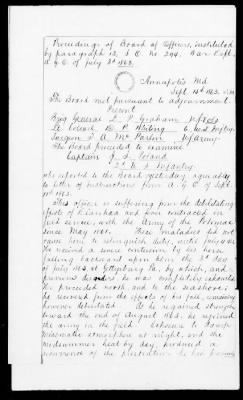 Proceedings of Board of Officers, instituted
by paragraph 13, S.O. No. 294, War Dept.
A.G.O. of July 3d 1863.
Annapolis Md
Sept. 15th 1863.
The Board met pursuant to adjournment.
Present
Brig General L. P. Graham
Lt Colonel
Surgeon A. McParlin U.S. Army
The Board proceeded to examine
Captain J. S. Poland
2d U.S. Infantry
who reported to the Board yesterday, agreeably
to letter of instructions from A.G.O. of Sept
1863.
This officer is suffering from the debilitating
effects of Diarrhea and fever contracted in
field service, with the Army of the Potomac
since May 1861. These maladies did not
cause him to relinquish duty, until July 1863.
He received a severe contusion by his horse
falling backward upon him the 3d day
of July 1863, at Gettysburg Pa, by which, and
previous disorder he was completely exhausted.
He proceeded north, and to the seashore;
he recovered from the effects of his fall, remaining
however debilitated. As he regained strength
toward the end of August 1863, he rejoined
the army in the field. Exposure to damp
miasmatic atmosphere at night, and the
midsummer heat by day, produced a
recurrence of the prostration he had